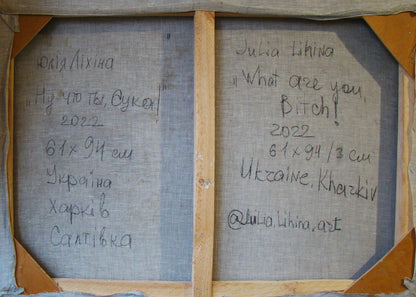 Юлія Ліхіна
„Ну что ты, Сука!"
2022
61 x 94 см
Україна
Харків
Салтівка
Julia Lihina
„What are you,
Bitch!
2022
61 x 94 /3 см
Ukraine, Kharkiv
@Julia.Lihina.art